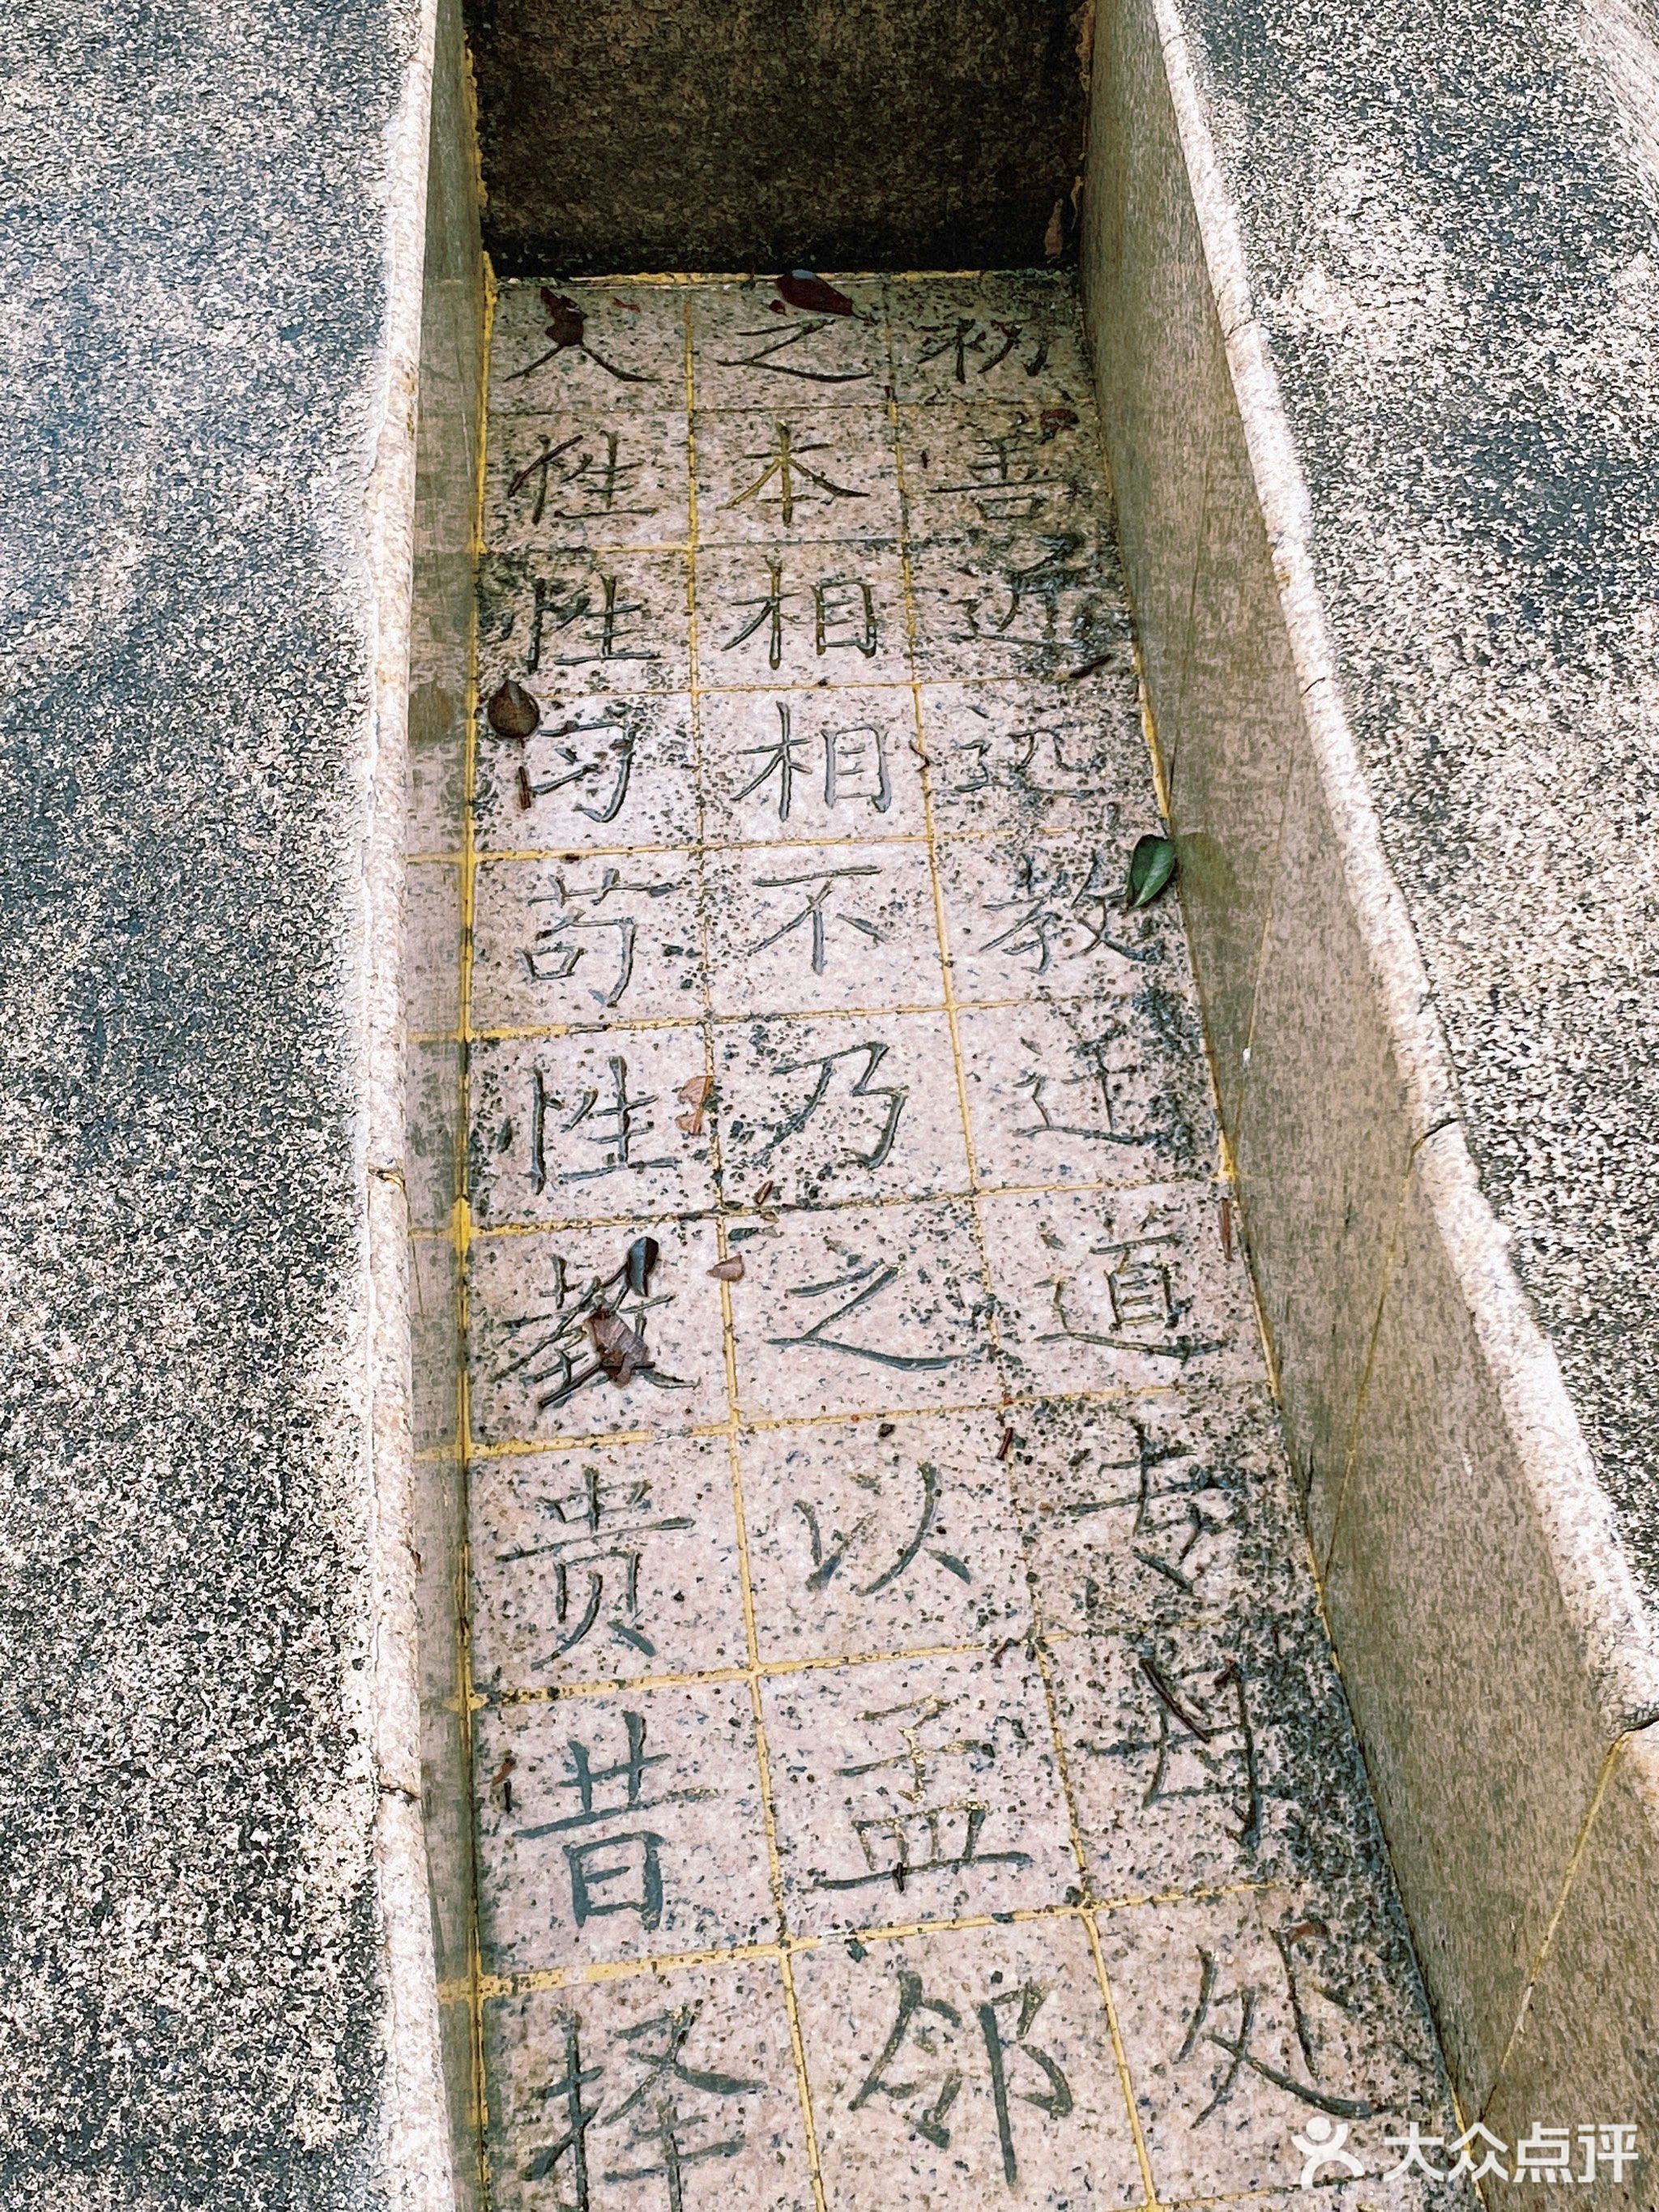 人之初
性本善
性相近
习相远
苟不教
性乃迁
教之道
贵以专
昔孟母
择邻处
大众点评